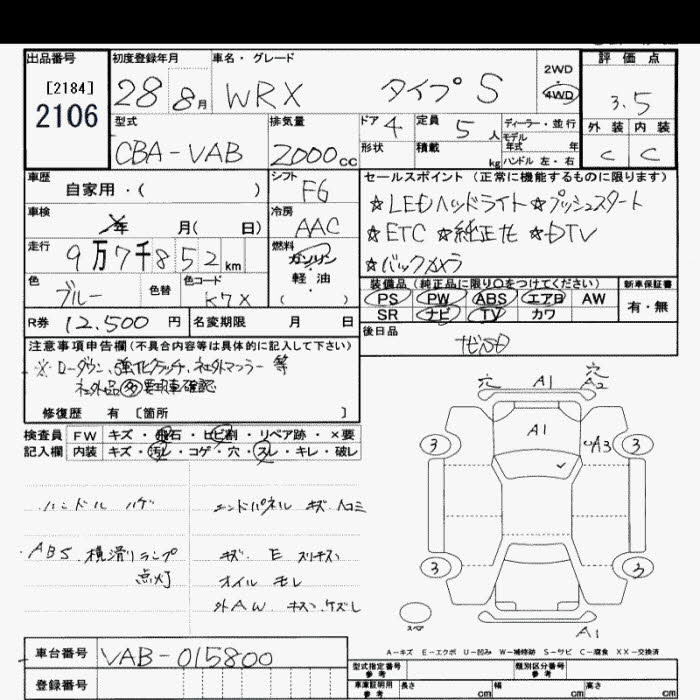 出品番号
[2184]
2106
初度登録年月
28 8月
車名・グレード
WRX タイプS
2WD
・
4WD
評価点
3.5
外装 内装
C C
型式
CBA-VAB
排気量
2000cc
ドア 4
形状
定員 5人
積載 kg
ディーラー・並行
モデル年式 年
ハンドル 左・右
車歴
自家用・( )
シフト
F6
車検
年 月( 日)
冷房
AAC
走行
9万7千852km
燃料
ガソリン
軽・油
( )
色
ブルー
色替
色コード
K7X
R券 12,500円
名変期限 月 日
セールスポイント(正常に機能するものに限ります)
☆LEDヘッドライト☆プッシュスタート
☆ETC ☆純正ナビ ☆DTV
☆バックカメラ
装備品(純正品に限り○をつけてください)
PS PW ABS エアB AW
SR ナビ TV カワ
新車保証書
有・無
後日品
注意事項申告欄(不具合内容等は具体的に記入して下さい)
※ローダウン、強化クラッチ、社外マフラー 等
社外品多 要現車確認
修復歴 有 [箇所 ]
検査員
記入欄
FW キズ・飛石・ヒビ割・リペア跡・×要
内装 キズ・汚レ・コゲ・穴・スレ・キレ・破レ
ハンドル ハゲ
・ABS 横滑りランプ
点灯
エンドパネル キズ ヘコミ
キズ E スリキズ
オイル モレ
外AW キズ ケズレ
穴 A1 穴 A2
A1
A3
3 3
3 3
スペア
A1
A-キズ E-エクボ U-凹み W-補修跡 S-サビ C-腐食 XX-交換済
車台番号
VAB-015800
登録番号
型式指定番号
参考
類別区分番号
参考
車庫証明用
参考
長さ cm 幅 cm 高さ cm